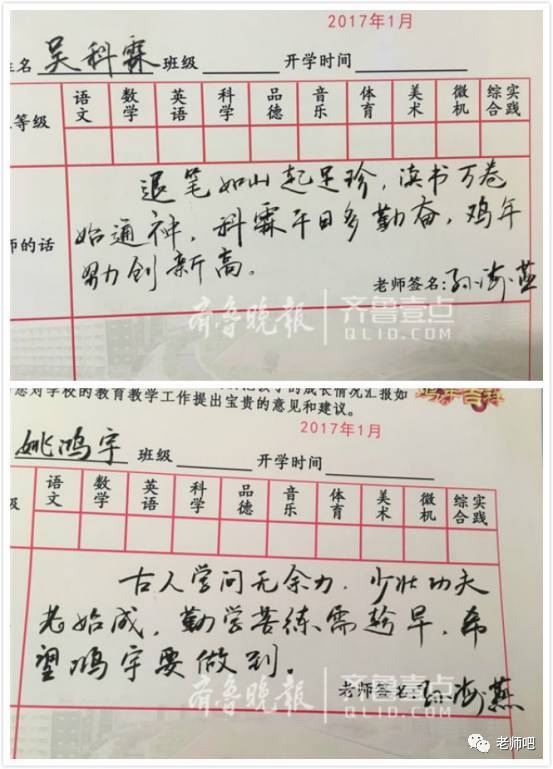 2017年1月
姓名 吴科霖 班级 开学时间
等级 语文 数学 英语 科学 品德 音乐 体育 美术 微机 综合实践
退笔如山起足珍，读书万卷
师的话 始通神，科霖平日多勤奋，鸡年
努力创新高。
老师签名：孙海燕
齐鲁晚报 齐鲁壹点
QLID.COM
您对学校的教育教学工作提出宝贵的意见和建议。
2017年1月
姚鸿宇 班级 开学时间
级 语文 数学 英语 科学 品德 音乐 体育 美术 微机 综合实践
古人学问无余力，少壮功夫
老始成，勤学苦练需趁早，希
望鸿宇要做到。
老师签名：孙海燕
齐鲁晚报 齐鲁壹点
QLID.COM
老师吧